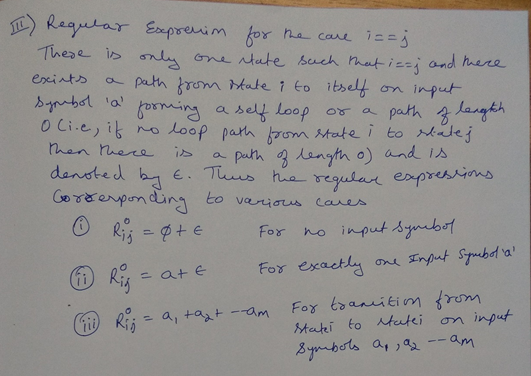 III) Regular Expression for the case i==j
There is only one state such that i==j and there
exists a path from state i to itself on input
symbol 'a' forming a self loop or a path of length
0 (i.e, if no loop path from state i to state j
then there is a path of length 0) and is
denoted by ε. Thus the regular expressions
Corresponding to various cases
(i) R⁰ij = ϕ + ε For no input symbol
(ii) R⁰ij = a + ε For exactly one Input Symbol 'a'
(iii) R⁰ij = a₁ + a₂ + --am For transition from
state i to state i on input
symbols a₁, a₂ -- am